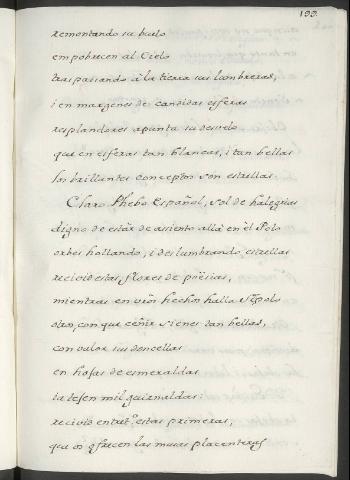 199.
remontando su buelo
empobrecen al Cielo
traspassando â la tierra sus lumbreras,
i en margenes de candidas esferas
resplandores apunta su desvelo
que en esferas tan blancas, i tan bellas
los brillantes conceptos son estrellas.
Claro Phebo Español, sol de halegrias
digno de estâr de asiento allâ en êl Polo
orbes hollando, i deslumbrando estrellas
recivid estas flores de poësias,
mientras en vros hechos halla Apolo
otro, con que ceñir sienes tan bellas,
con valor sus doncellas
en hojas de esmeraldas
la tejen mil guirnaldas:
recivid entretto. estas primeras,
que os ofrecen las musas placenteras